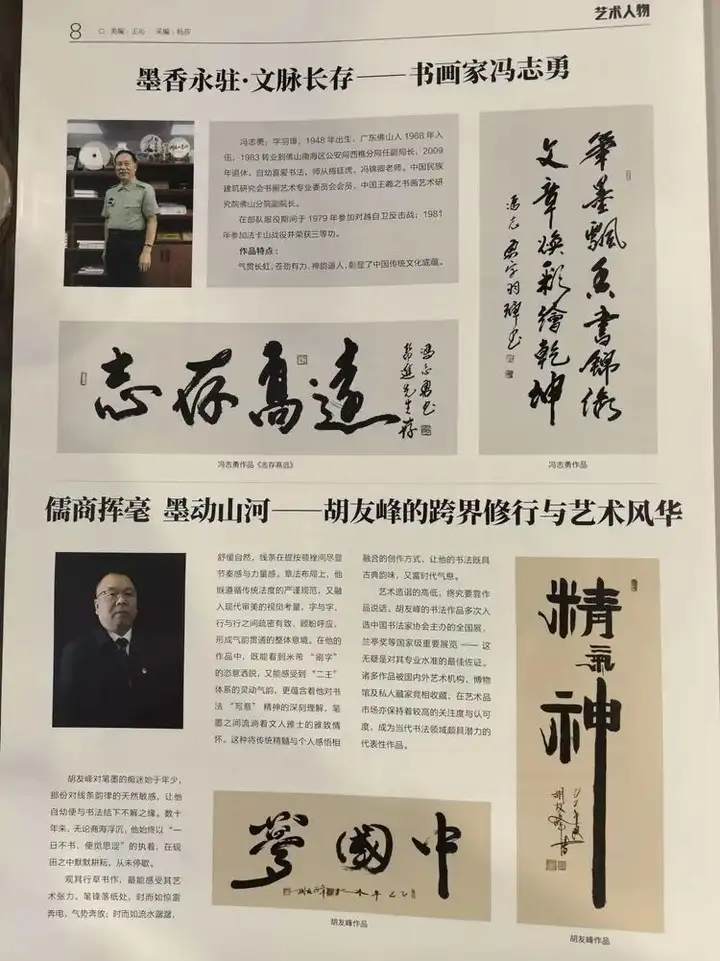 8
美编：王沁 采编：杨莎
艺术人物
墨香永驻·文脉长存——书画家冯志勇
冯志勇：字羽璋，1948年出生，广东佛山人1968年入
伍，1983转业到佛山南海区公安局西樵分局任副局长，2009
年退休。自幼喜爱书法，师从梅廷虎、冯锦卿老师。中国民族
建筑研究会书画艺术专业委员会会员，中国王羲之书画艺术研
究院佛山分院副院长。
在部队服役期间于1979年参加对越自卫反击战；1981
年参加法卡山战役并荣获三等功。
作品特点：
气贯长虹，苍劲有力，神韵逼人，彰显了中国传统文化底蕴。
笔墨飘香書錦繡
文章煥彩繪乾坤
冯志勇字羽璋书
志存高遠
冯志勇书
冯志勇作品《志存高远》
冯志勇作品
儒商挥毫 墨动山河——胡友峰的跨界修行与艺术风华
胡友峰对笔墨的痴迷始于年少，
那份对线条韵律的天然敏感，让他
自幼便与书法结下不解之缘。数十
年来，无论商海浮沉，他始终以“一
日不书，便觉思涩”的执着，在砚
田之中默默耕耘，从未停歇。
观其行草书作，最能感受其艺
术张力。笔锋落纸处，时而如惊雷
奔电，气势奔放；时而如流水潺潺，
舒缓自然，线条在提按顿挫间尽显
节奏感与力量感。章法布局上，他
既遵循传统法度的严谨规范，又融
入现代审美的视觉考量，字与字、
行与行之间疏密有致、顾盼呼应，
形成气韵贯通的整体意境。在他的
作品中，既能看到米芾“刷字”
的恣意洒脱，又能感受到“二王”
体系的灵动气韵，更蕴含着他对书
法“写意”精神的深刻理解，笔
墨之间流淌着文人雅士的雅致情
怀。这种将传统精髓与个人感悟相
融合的创作方式，让他的书法既具
古典韵味，又富时代气息。
艺术造诣的高低，终究要靠作
品说话。胡友峰的书法作品多次入
选中国书法家协会主办的全国展、
兰亭奖等国家级重要展览——这
无疑是对其专业水准的最佳佐证。
诸多作品被国内外艺术机构、博物
馆及私人藏家竞相收藏，在艺术品
市场亦保持着较高的关注度与认可
度，成为当代书法领域颇具潜力的
代表性作品。
精氣神
胡友峰书
中國夢
胡友峰作品
胡友峰作品